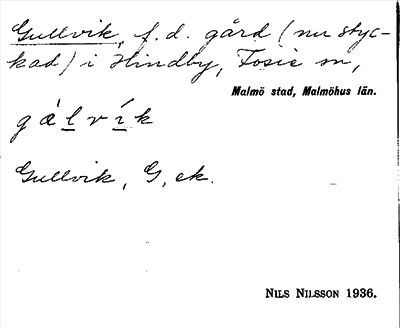 Gullvik, f. d. gård (nu styc-
kad) i Hindby, Fosie sn,
Malmö stad, Malmöhus län.
gálvík
Gullvik, G, ek.
NILS NILSSON 1936.